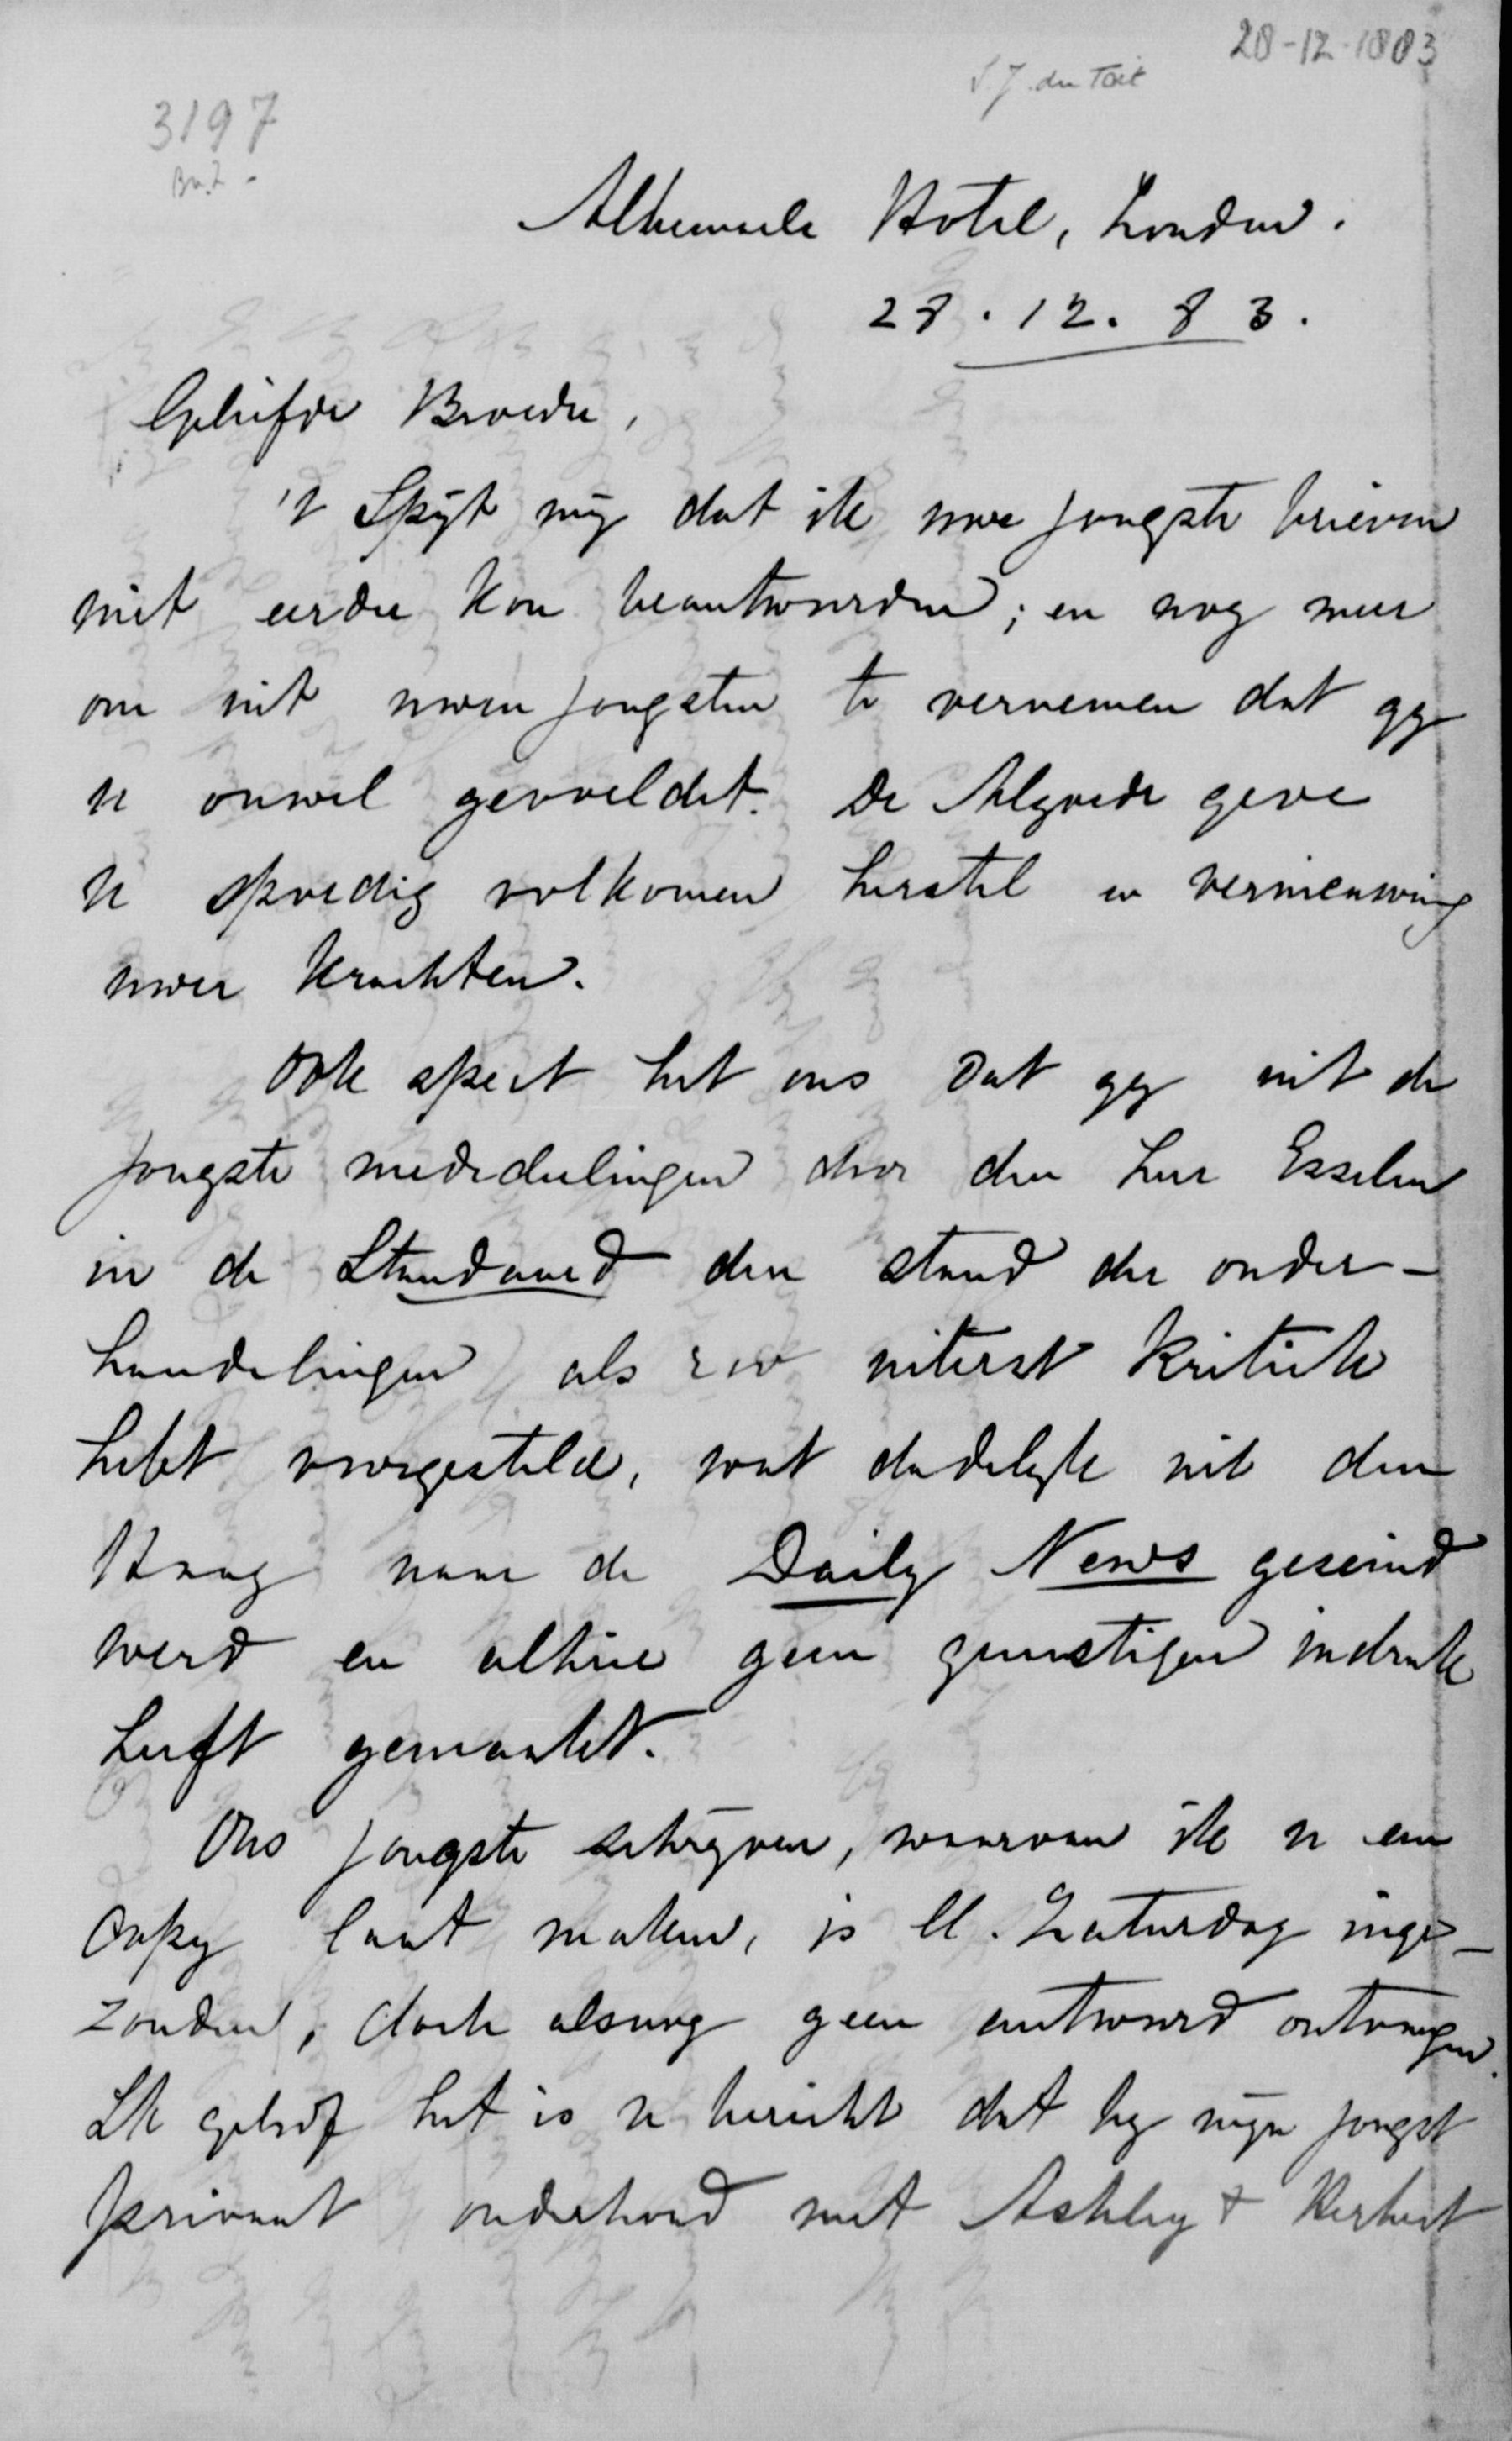 28-12-1883
S. J. du Toit
3197
Albemarle Hotel, London.
28.12.83.
Geliefde Broeder,
't Spijt mij dat ik uwe jongste brieven
niet eerder kon beantwoorden; en nog meer
om uit uwen jongsten te vernemen dat gy
u onwel gevoeldet. De Algoede geve
u spoedig volkomen herstel en vernieuwing
uwer krachten.
Ook speet het ons dat gy uit de
jongste mededeelingen door den heer Esselen
in de Standaard den stand der onder-
handelingen als zoo uiterst kritiek
hebt voorgesteld, wat dadelyk uit den
Haag naar de Daily News geseind
werd en alhier geen gunstigen indruk
heeft gemaakt.
Ons jongste schrijven, waarvan ik u een
Copy laat maken, is ll. Zaturdag inge-
zonden, doch alsnog geen antwoord ontvangen.
Ik geloof het is u bericht dat by mijn jongst
privaat onderhoud met Ashley & Herbert